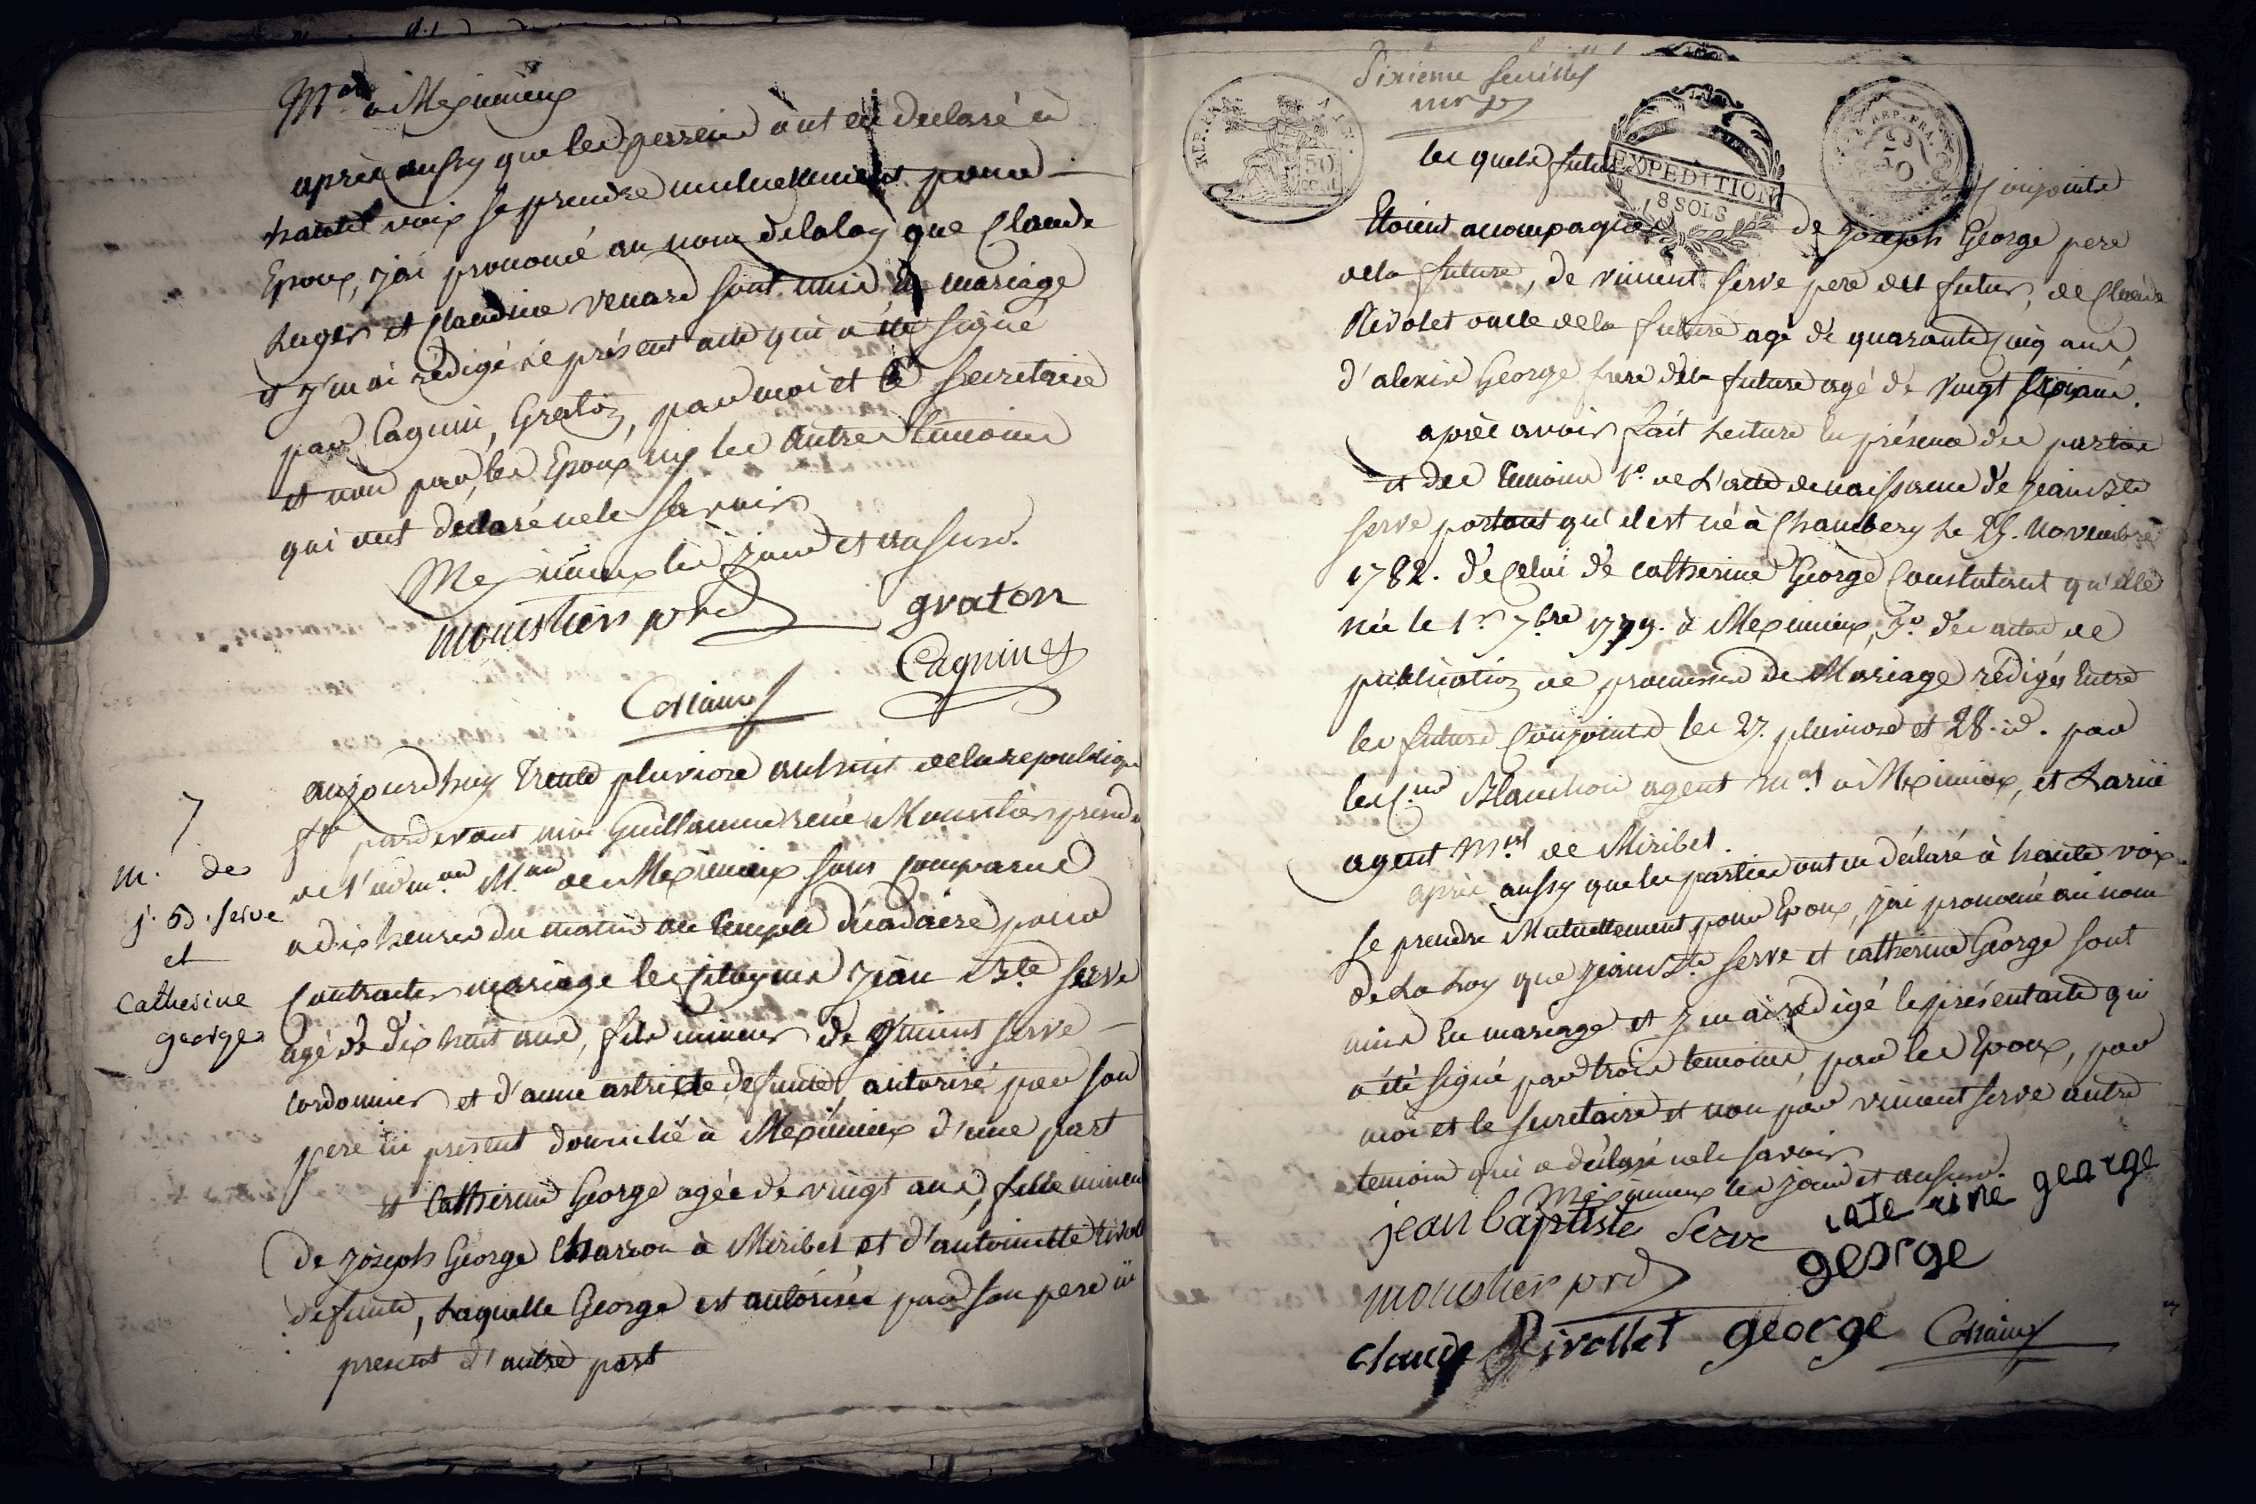 Mal a Meximieux
après aussy que les parties ont eu declaré à
haute voix se prendre mutuellement pour
Epoux, j'ai prononcé au nom de la loy que Claude
Luger et Claudine venard sont unis En mariage
et J'en ai rédigé le présent acte qui a été signé
par Cagnin, Graton, par moi et le Secretaire
et non par les Epoux ny les autres temoins
qui ont déclaré ne le savoir
Meximieux les jour et an susd.
moustier prd graton
Cagnin
7
m. de
j. b. serve
et
Catherine
george
aujourd'huy Trente pluviose an huit de la republique
fse pardevant moi Guillaume rené Moustier presidt
de l'adm.on M.ale de Meximieux sont comparus
a dix heures du matin au temple décadaire pour
Contracter mariage les Citoyens Jean Bte serve
agé de dix huit ans, fils mineur de Vincent serve
cordonnier et d'anne defunte, autorisé par son
pere ici present domicilié à Meximieux d'une part
et Catherine George agée de vingt ans, fille mineure
de Joseph George Charron à Miribel et d'antoinette
defunte, Laquelle George est autorisée par son pere ici
present d'autre part
Sixieme feuillet
les quels futurs Conjoints
REP. FRA.
50
CENT.
EXPÉDITION
8 SOLS
REP. FRA.
50
Etoient acompagnés de Joseph George pere
de la future, de vincent serve pere du futur, de Claude
Rivolet oncle de la future agé de quarante Cinq ans,
d'alexis George frere de la future agé de vingt ans.
après avoir fait Lecture En présence des parties
et des temoins 1° de L'acte de naissance de jean Bte
serve portant qu'il est né à Chambery le 25. novembre
1782. de Celui de catherine George Constatant qu'elle
née le 1er 7bre 1779. à Meximieux, 3° des actes de
publication de promesses de Mariage rédigés Entre
les futurs Conjoints les 27. pluviose et 28. id. par
les C.ens Blanchon agent m.al à Meximieux, et Larue
agent M.al de Miribel.
après aussy que les parties ont eu déclaré à haute voix
se prendre Mutuellement pour Epoux, j'ai prononcé au nom
de La Loy que jean Bte serve et catherine George sont
unis En mariage et J'en ai rédigé le présent acte qui
a été signé par trois temoins, par les Epoux, par
moi et le secretaire et non par vincent serve autre
temoin qui a déclaré ne le savoir
Meximieux les jour et an susd.
jean baptiste Serve caterine george
moustier prd george
claude Rivollet george